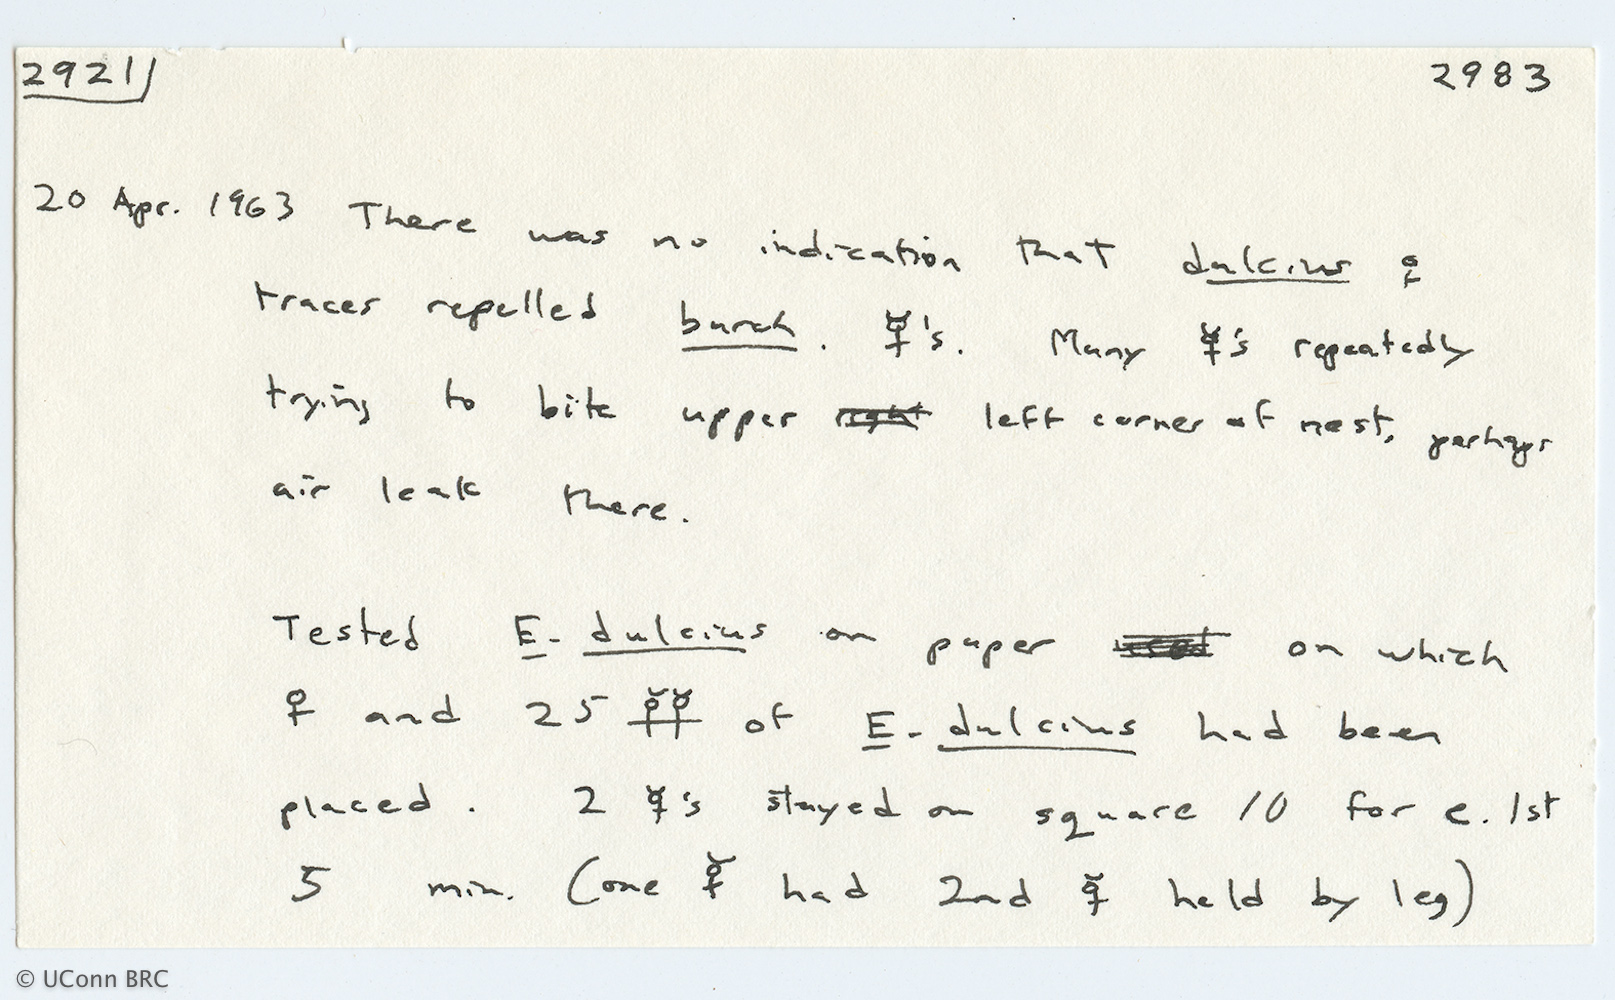 2921 2983
20 Apr. 1963 There was no indication that dulcius ♀
traces repelled burch. ☿'s. Many ☿'s repeatedly
trying to bite upper right left corner of nest, perhaps
air leak there.
Tested E. dulcius on paper used on which
♀ and 25 ☿☿ of E. dulcius had been
placed. 2 ☿'s stayed on square 10 for e. 1st
5 min. (one ☿ had 2nd ☿ held by leg)
© UConn BRC